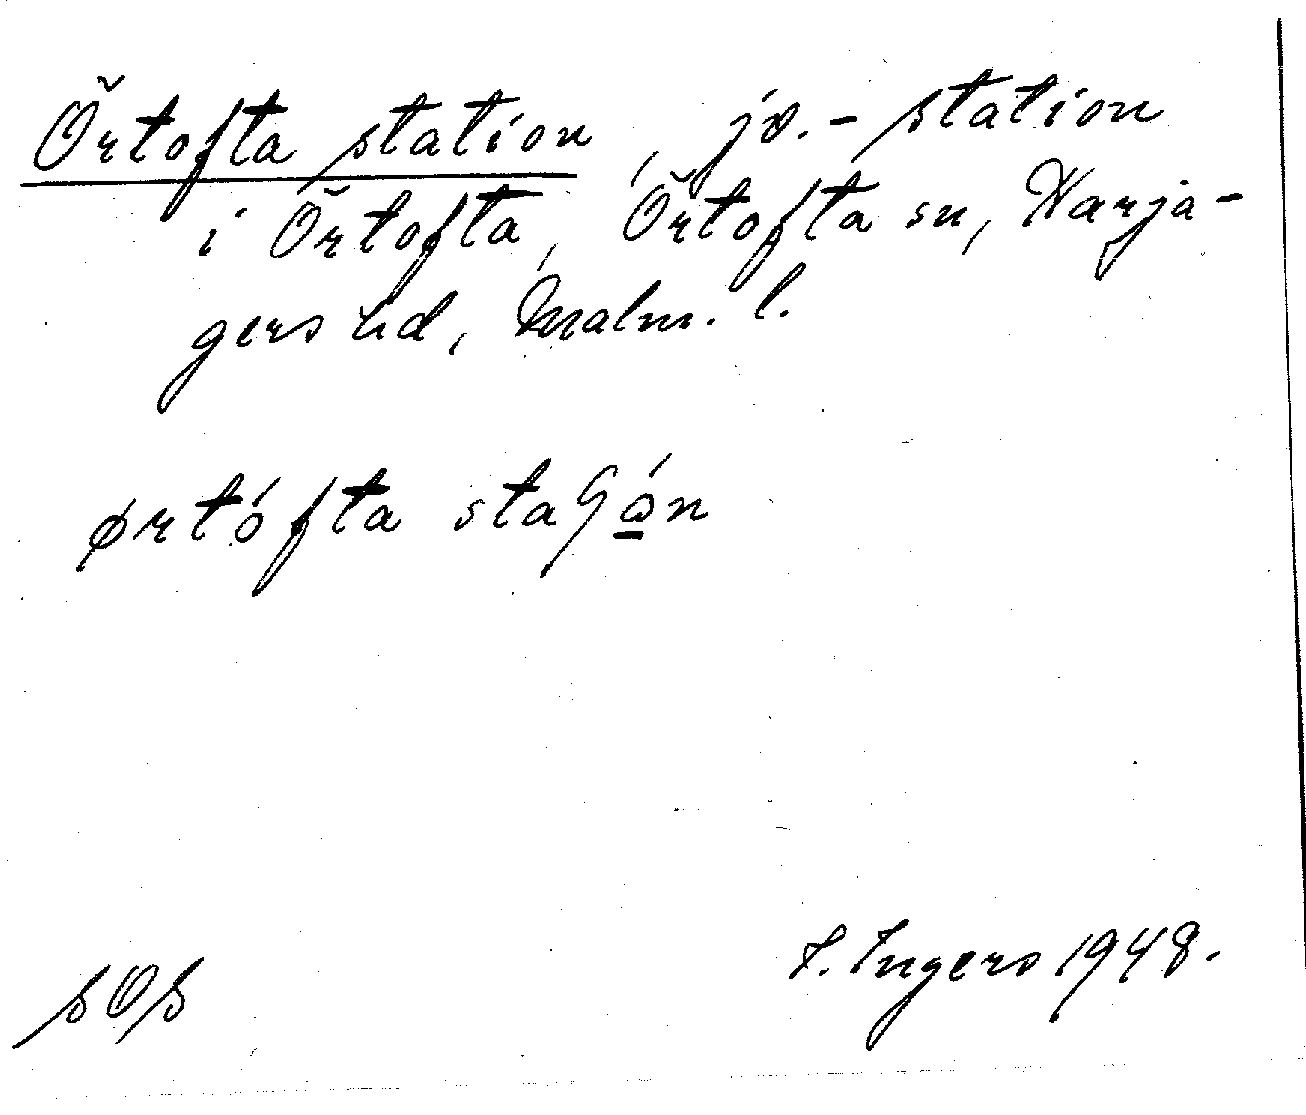 Örtofta station, jv.-station
i Örtofta, Örtofta sn, Harja-
gers hd, Malm. l.
ørtófta staʃǫ́n
I. Ingers 1948.
SOS